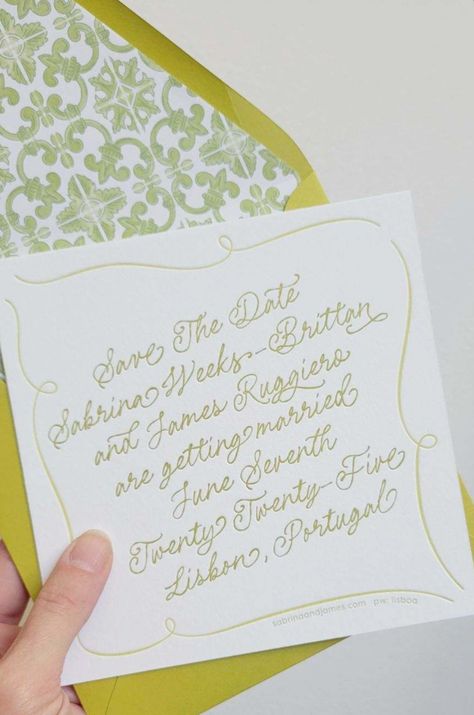 Save The Date
Sabrina Weeks-Brittan
and James Ruggiero
are getting married
June Seventh
Twenty Twenty-Five
Lisbon, Portugal
sabrinaandjames.com pw: lisboa